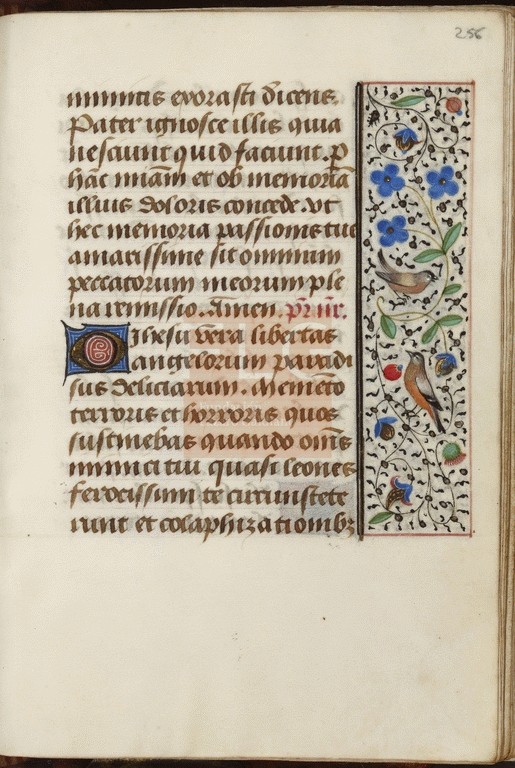 256
inimicis exorasti dicens.
Pater ignosce illis quia
nesciunt quid faciunt. P
hāc miam̄ et ob memoriā
illius doloris concede. vt
hec memoria passionis tue
amarissime sit omnium
peccatorum meorum ple
na remissio. Amen. pr̄ nr̄.
O ihesu vera libertas
angelorum paradi
sus deliciarum. Memēto
terroris et horroris quos
sustinebas quando om̄s
inimici tui quasi leones
ferocissimi te circumstete
runt et colaphizationibꝫ